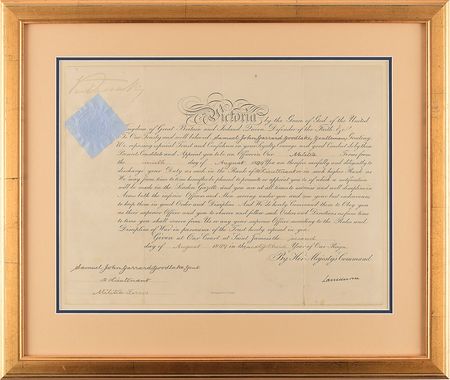 Victoria by the Grace of God, of the United
Kingdom of Great Britain and Ireland Queen, Defender of the Faith, &c.
To Our Trusty and well beloved Samuel John Garrard Goodlake, Gentleman Greeting.
We reposing especial Trust and Confidence in your Loyalty, Courage, and good Conduct, do by these
Presents Constitute and Appoint you to be an Officer in Our Militia Forces from
the ninth day of August You are therefore carefully and diligently to
discharge your Duty as such in the Rank of Lieutenant or in such higher Rank as
We may from time to time hereafter be pleased to promote or appoint you to of which a notification
will be made in the London Gazette and you are at all times to exercise and well discipline in
Arms both the inferior Officers and Men serving under you and use your best endeavours
to keep them in good Order and Discipline. And We do hereby Command them to Obey you
as their superior Officer and you to observe and follow such Orders and Directions as from time
to time you shall receive from Us or any your superior Officer according to the Rules and
Discipline of War in pursuance of the Trust hereby reposed in you.
Given at Our Court at Saint James's the second
day of August in the Year of Our Reign
By Her Majesty's Command
Samuel John Garrard Goodlake, Gent.
2 Lieutenant
Militia Forces
Lansdowne